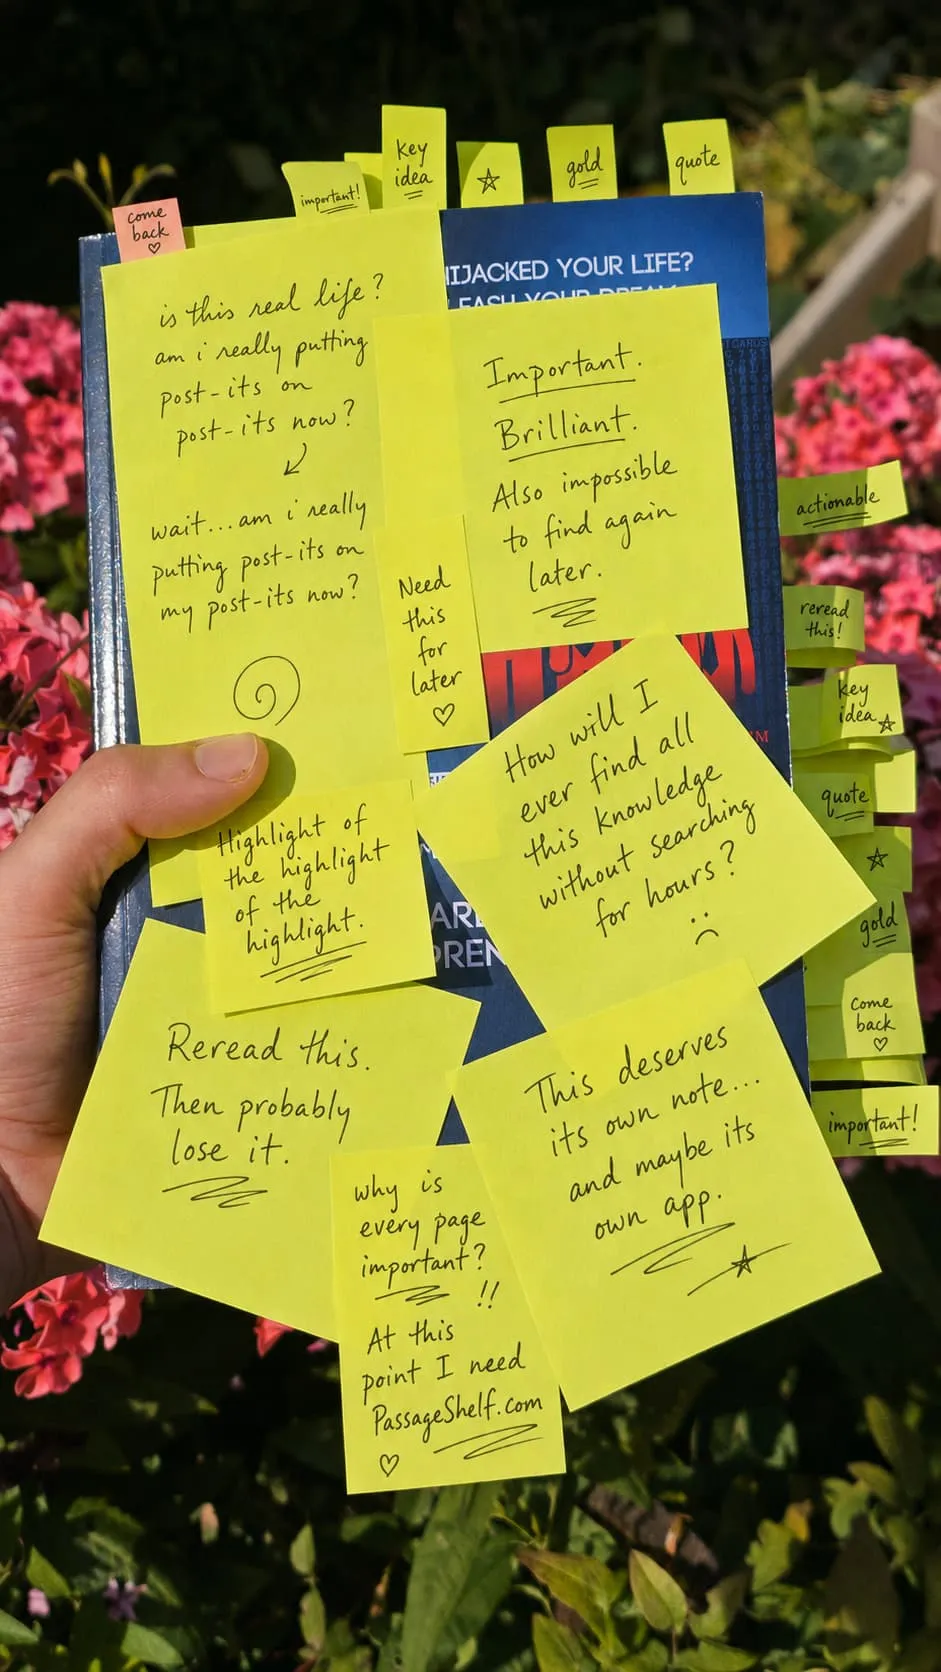 come
back
important!
key
idea
gold
quote
HIJACKED YOUR LIFE?
is this real life?
am i really putting
post-its on
post-its now?
wait...am i really
putting post-its on
my post-its now?
Important.
Brilliant.
Also impossible
to find again
later.
Need
this
for
later
How will I
ever find all
this knowledge
without searching
for hours?
Highlight of
the highlight
of the
highlight.
Reread this.
Then probably
lose it.
This deserves
its own note...
and maybe its
own app.
why is
every page
important?
!!
At this
point I need
PassageShelf.com
actionable
reread
this!
key
idea
quote
gold
come
back
important!